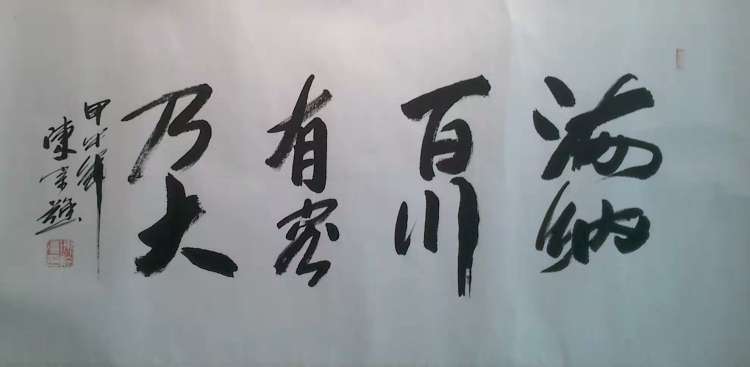 海纳
百川
有容
乃大
甲午年
陳